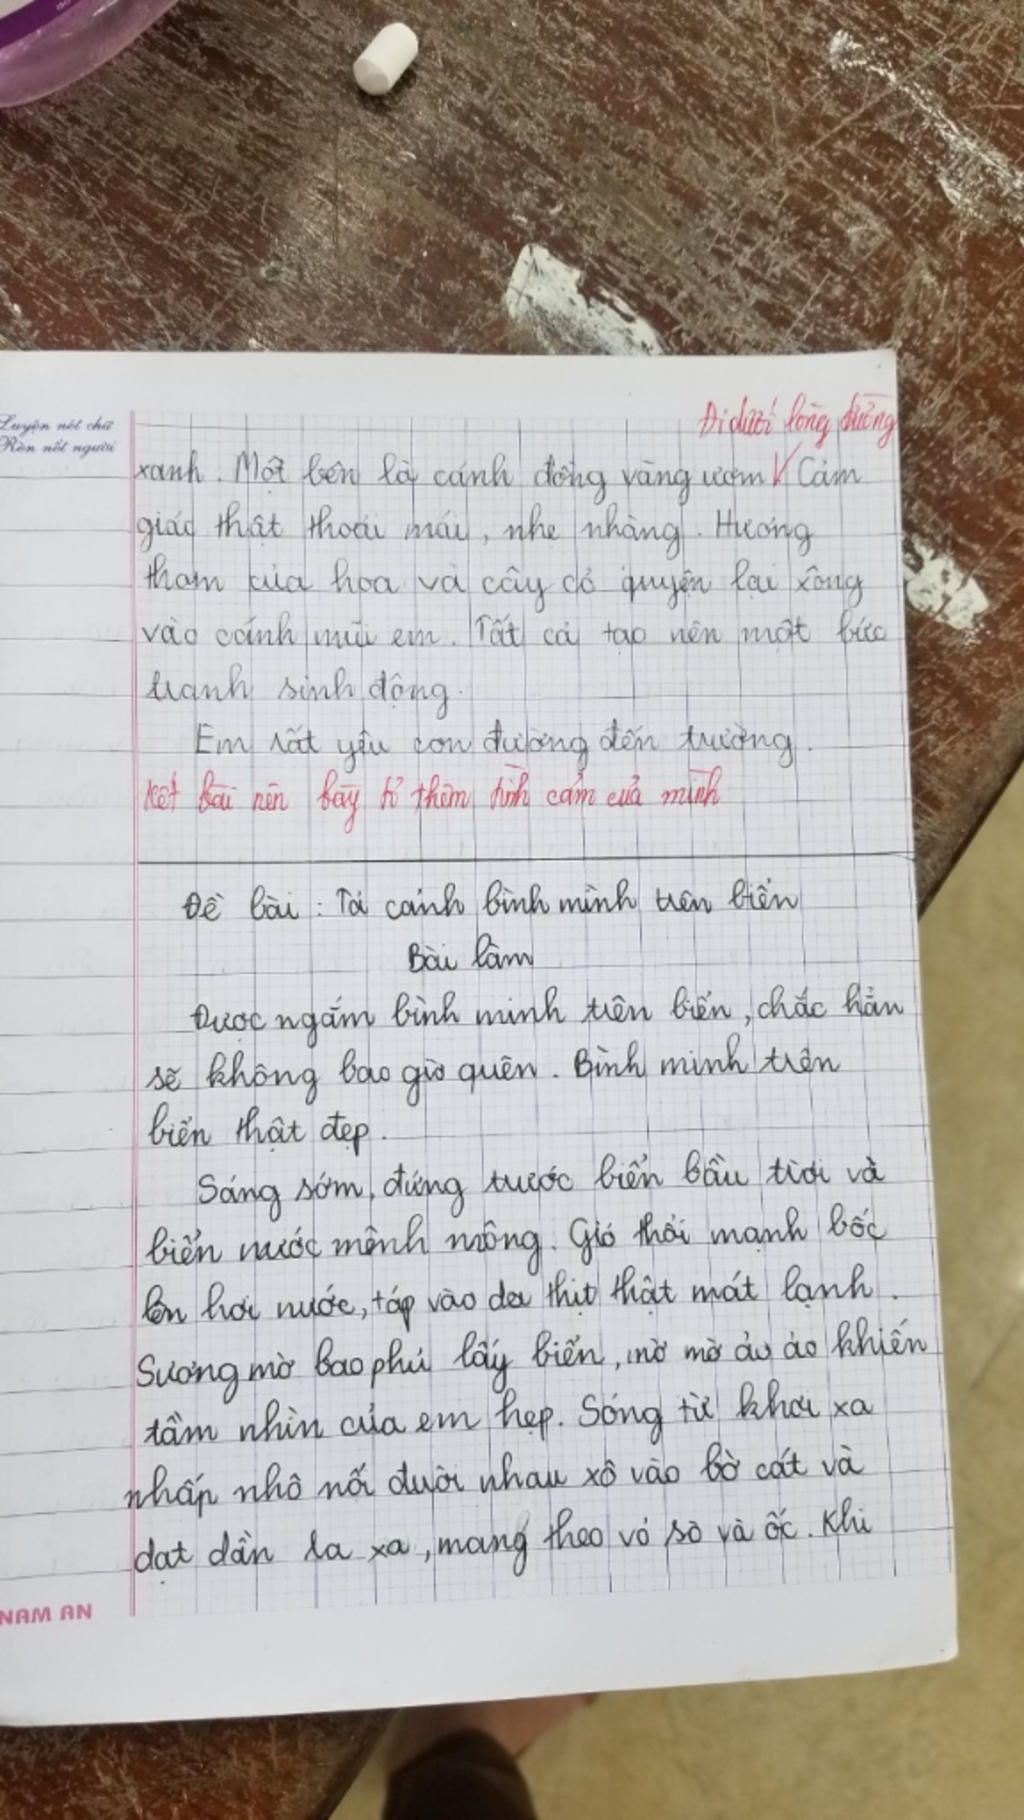 Luyện nét chữ
Rèn nết người
Đi dưới lòng đường
xanh. Một bên là cánh đồng vàng ươm √ Cảm
giác thật thoải mái, nhẹ nhàng. Hương
thơm của hoa và cây cỏ quyện lại xông
vào cánh mũi em. Tất cả tạo nên một bức
tranh sinh động.
Em rất yêu con đường đến trường.
Kết bài nên bày tỏ thêm tình cảm của mình
Đề bài: Tả cảnh bình mình trên biển
Bài làm
Được ngắm bình minh trên biển, chắc hẳn
sẽ không bao giờ quên. Bình minh trên
biển thật đẹp.
Sáng sớm, đứng trước biển bầu trời và
biển nước mênh mông. Gió thổi mạnh bốc
lên hơi nước, táp vào da thịt thật mát lạnh.
Sương mờ bao phủ lấy biển, mờ mờ ảo ảo khiến
tầm nhìn của em hẹp. Sóng từ khơi xa
nhấp nhô nối đuôi nhau xô vào bờ cát và
dạt dần ra xa, mang theo vỏ sò và ốc. Khi
NAM AN